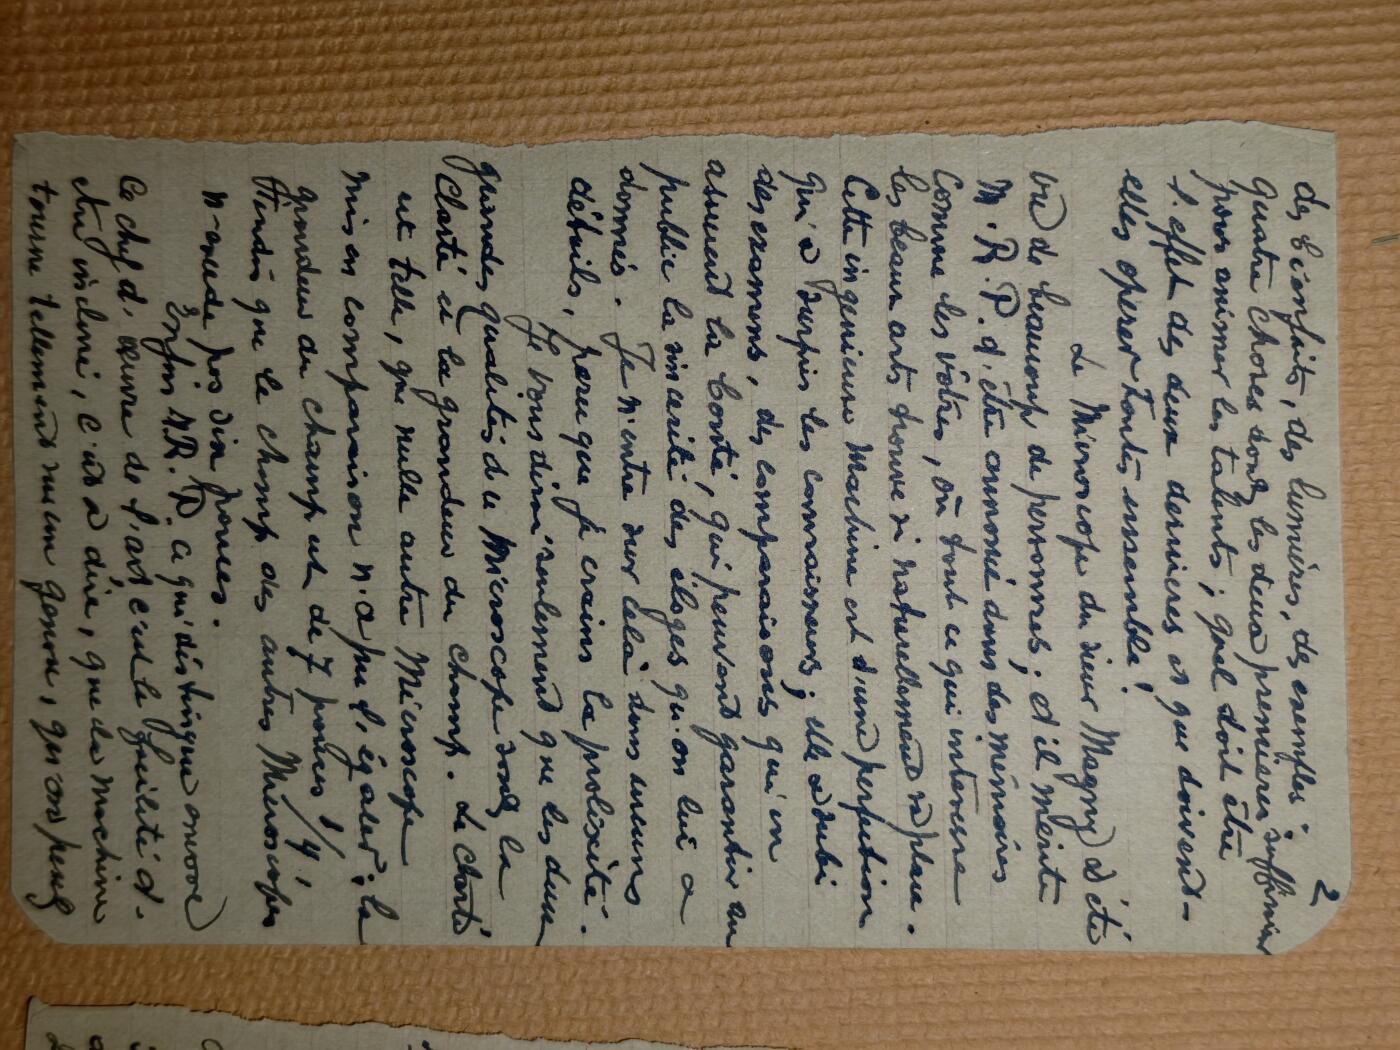 2
des bienfaits, des lumières, des exemples ;
quatre choses dont les deux premieres suffisent
pour animer les talents ; quel doit être
l'effet des deux dernieres et que doivent-
elles opérer toutes ensemble !
Le Microscope du sieur Magny a été
vu de beaucoup de personnes ; et il mérite
M. R. P. d'être annoncé dans des mémoires
comme les vôtres, où tout ce qui interesse
les beaux arts trouve si naturellement sa place.
Cette ingenieuse Machine est d'une perfection
qui a surpris les connaisseurs ; elle a subi
des examens, des comparaisons qui en
assurent la bonté, qui peuvent garantir au
public la sincerité des éloges qu'on lui a
donnés. Je n'entre sur cela dans aucuns
détails, parce que je crains la prolixité.
Je vous dirai seulement que les deux
grandes qualités de ce Microscope sont la
clarté et la grandeur du champ. La clarté
est telle, que nulle autre Microscope
mis en comparaison n'a pu l'égaler ; la
grandeur du champ est de 7 pouces 1/4
tandis que le champ des autres Microscopes
n'excede pas six pouces.
Enfin M. R. P. ce qui distingue encore
ce chef d'œuvre de l'art c'est la facilité d'
être incliné, c'est à dire, que la machine
tourne tellement sur un genou, qu'on peut